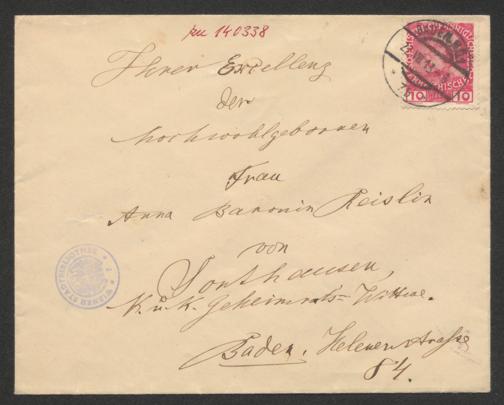 zu 140338
Ihrer Exzellenz
der
hochwohlgebornen
Frau
Anna Baronin Reislin
von
Sonthausen,
K. u. K. Geheimrats-Witwe.
Baden, Helenenstrasse
84.
WIENER STADTBIBLIOTHEK
10 10